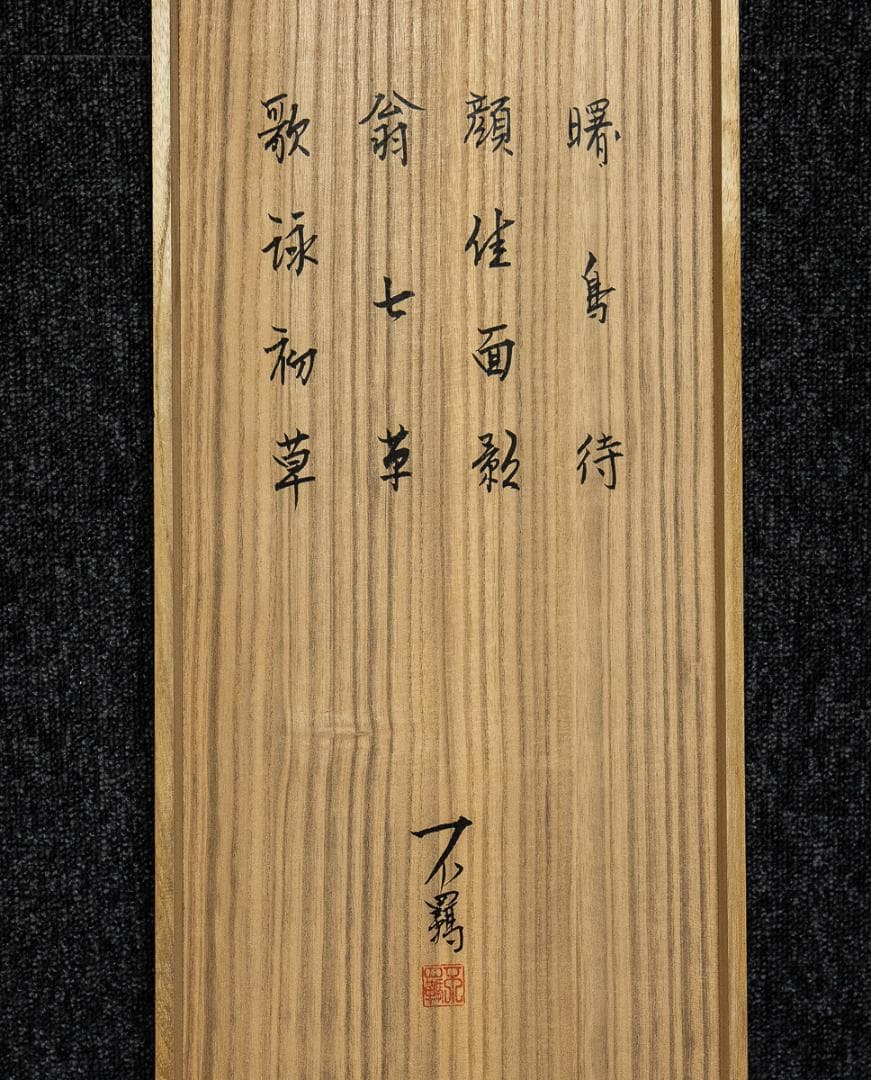 曙鳥待
顔佳面影
翁七草
歌詠初草
不羈
不羈